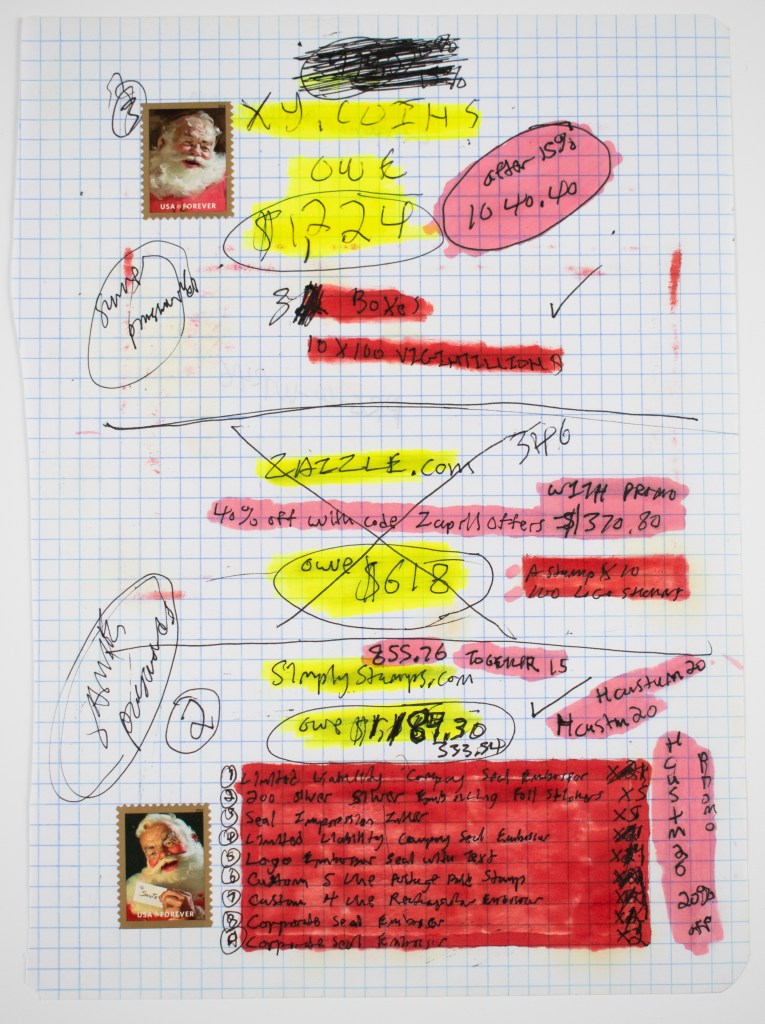 XY.COINS
OWE
$1,224
after 15%
1040.40
USA FOREVER
3 Boxes
10 X 100 VIGINTILLIONS
ZAZZLE.com
346
WITH PROMO
40% off with code Zaprill Offers $1370.80
owe $618
A Stamp X 10
100 Logo Stickers
855.76 TOGETHR 15
Simply Stamps.com
Hcustum20
Hcustm20
2
owe $1,187.30
333.54
① Limited Liability Company Seal Embosser
② 200 Silver Silver Embossing Foil Stickers X5
③ Seal Impression Inker
④ Limited Liability Company Seal Embosser
⑤ Logo Embosser Seal with Text
⑥ Custom 5 line Stamp
⑦ Custom 4 line Rectangular Embosser
⑧ Corporate Seal Embosser
Corporate Seal Embosser X2
HCUSTM20
PROMO
20% off
USA FOREVER